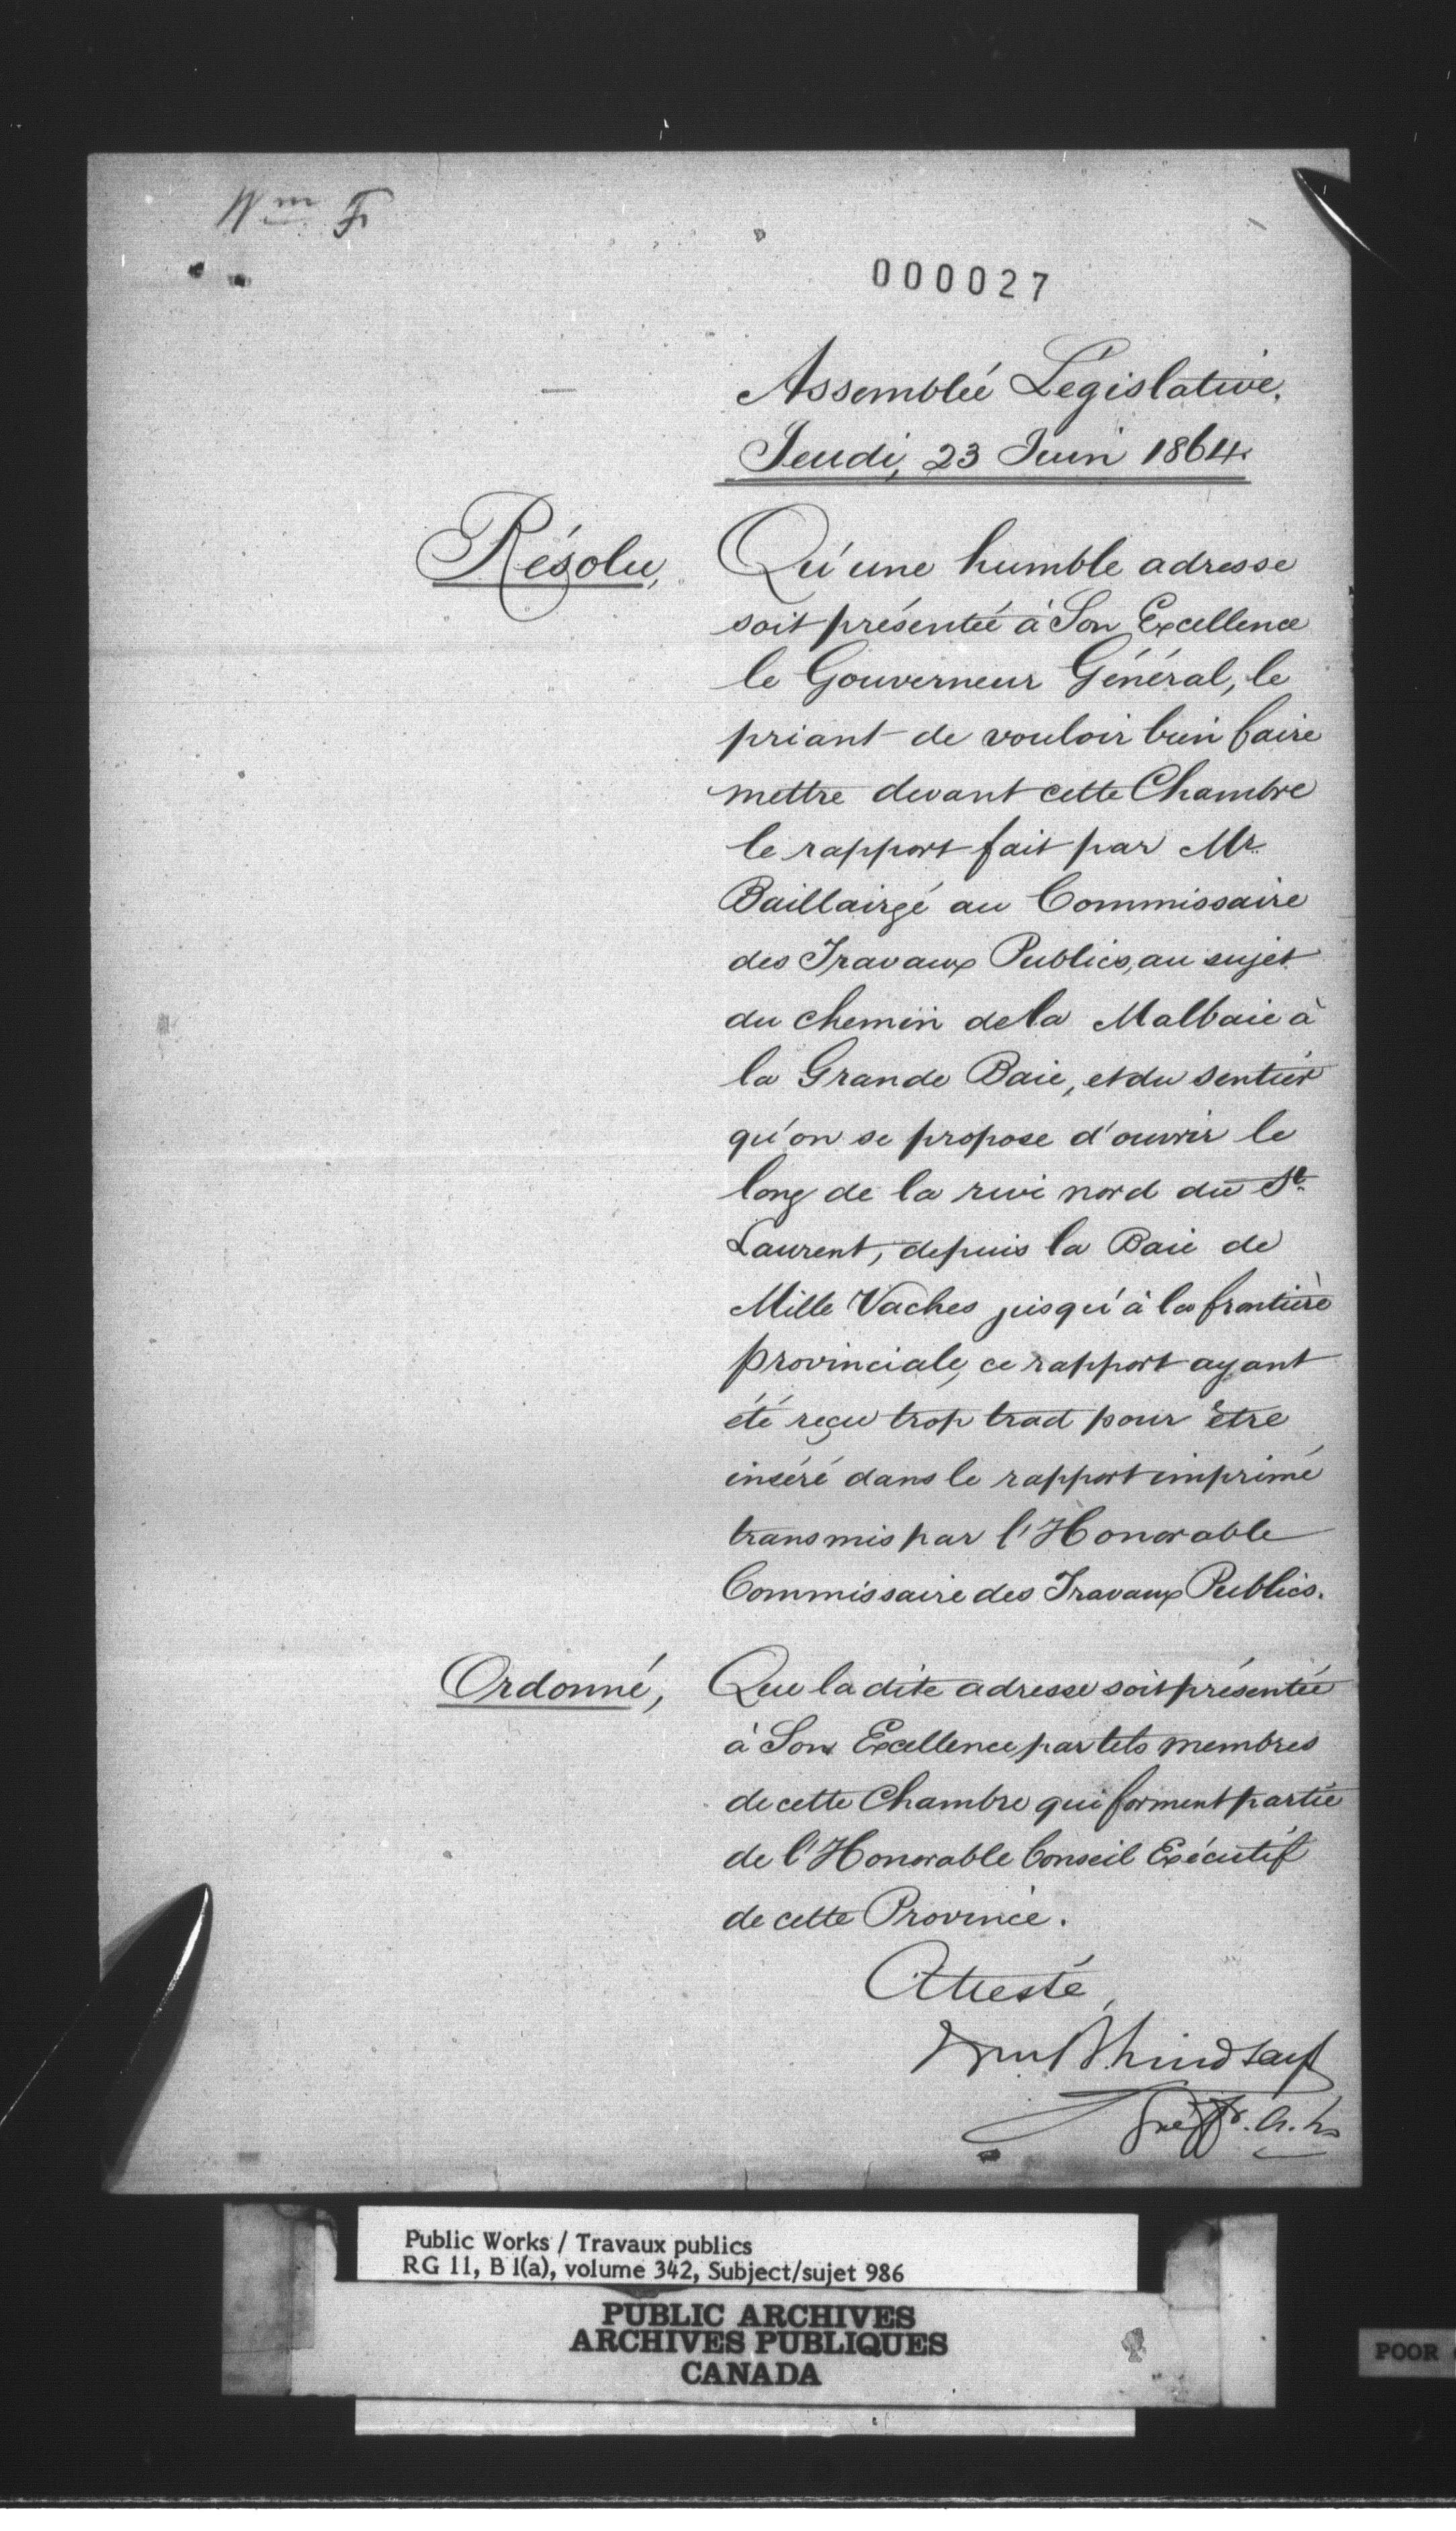 Wm F
000027
Assemblée Législative,
Jeudi, 23 Juin 1864.
Résolu, Qu'une humble adresse
soit présentée à Son Excellence
le Gouverneur Général, le
priant de vouloir bien faire
mettre devant cette Chambre
le rapport fait par Mr.
Baillairgé au Commissaire
des Travaux Publics, au sujet
du chemin de la Malbaie à
la Grande Baie, et du sentier
qu'on se propose d'ouvrir le
long de la rive nord du St.
Laurent, depuis la Baie de
Mille Vaches jusqu'à la frontière
provinciale, ce rapport ayant
été reçu trop trad pour être
inséré dans le rapport imprimé
transmis par l'Honorable
Commissaire des Travaux Publics.
Ordonné, Que la dite adresse soit présentée
à Son Excellence par tels membres
de cette Chambre qui forment partie
de l'Honorable Conseil Exécutif
de cette Province.
Attesté,
Wm B Lindsay
Greffr. A. L.
Public Works / Travaux publics
RG 11, B 1(a), volume 342, Subject/sujet 986
PUBLIC ARCHIVES
ARCHIVES PUBLIQUES
CANADA
POOR